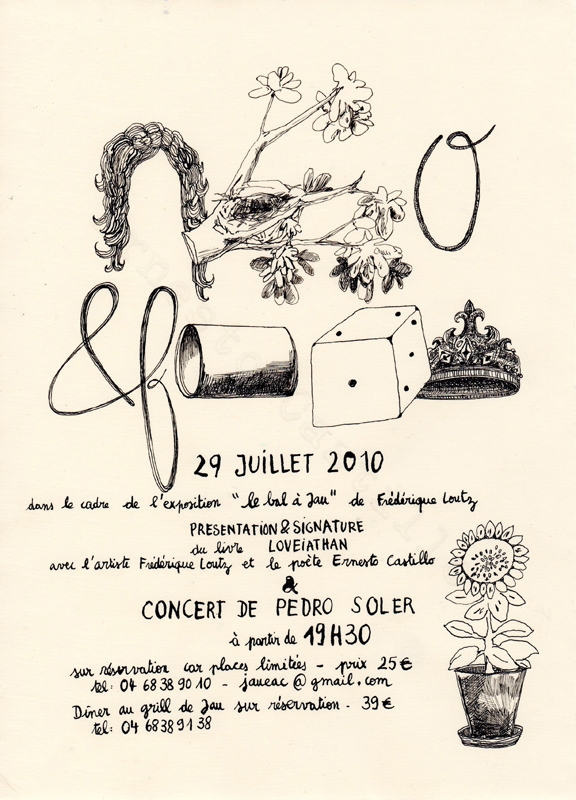 29 JUILLET 2010
dans le cadre de l'exposition "le bal à Jau" de Frédérique Loutz
PRESENTATION & SIGNATURE
du livre LOVEiATHAN
avec l'artiste Frédérique Loutz et le poète Ernesto Castillo
&
CONCERT DE PEDRO SOLER
à partir de 19H30
sur réservation car places limitées - prix 25€
tel: 04 68 38 90 10 - jaueac@gmail.com
Dîner au grill de Jau sur réservation - 39€
tel: 04 68 38 91 38